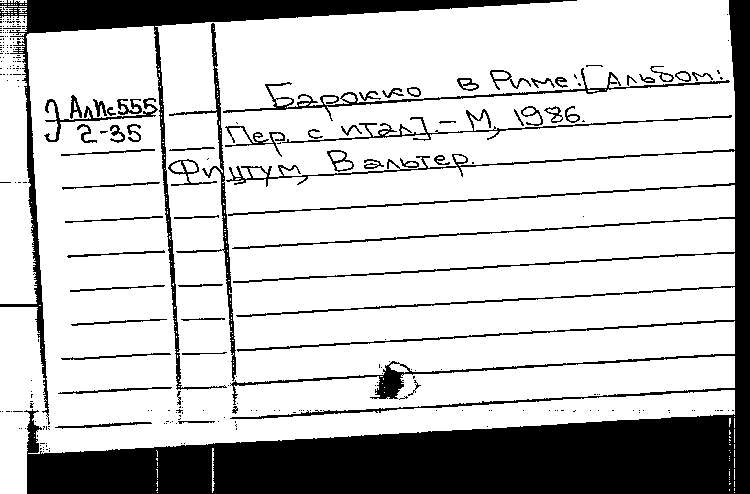 Барокко в Риме: [Альбом:
АлИс555
2-35
Пер. с итал]. - М, 1986.
Фицтум, Вальтер.